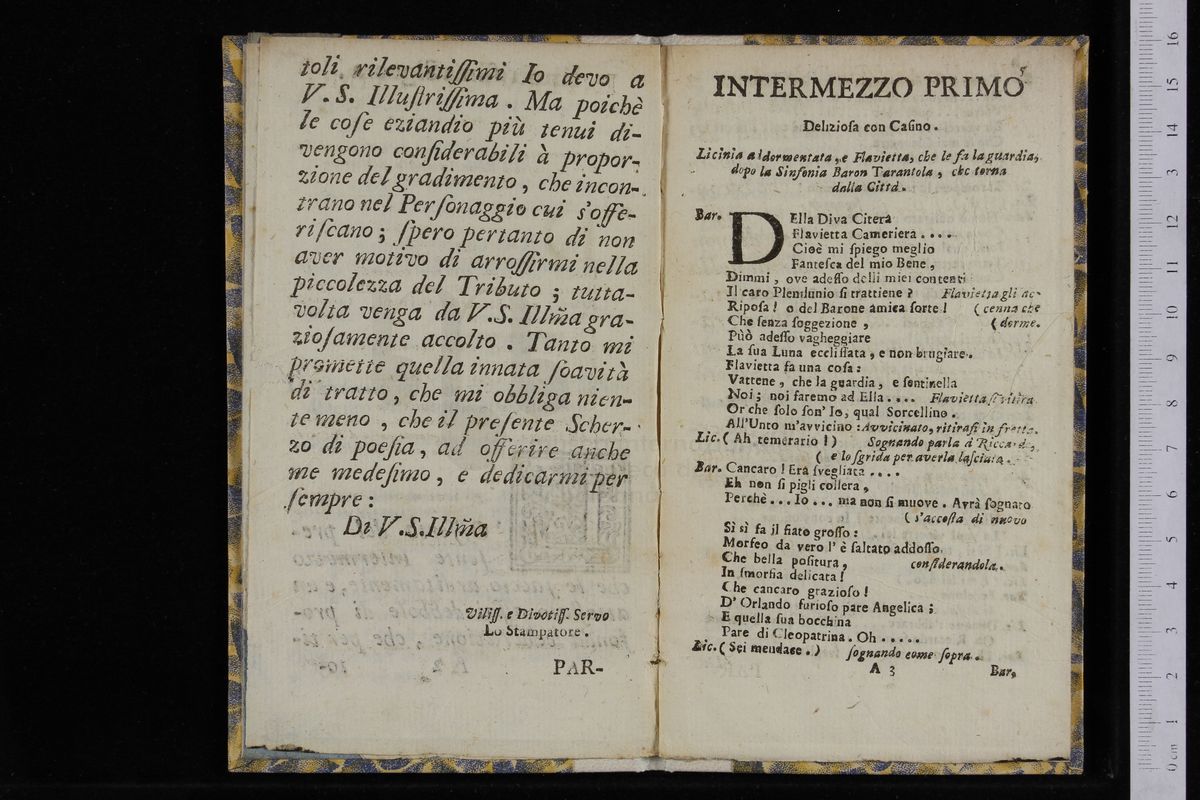 toli rilevantiſſimi Io devo a
V. S. Illuſtriſſima. Ma poichè
le coſe eziandio più tenui di-
vengono conſiderabili à propor-
zione del gradimento, che incon-
trano nel Perſonaggio cui s'offe-
riſcano; ſpero pertanto di non
aver motivo di arroſſirmi nella
piccolezza del Tributo; tutta-
volta venga da V.S. Illm̃a gra-
zioſamente accolto. Tanto mi
promette quella innata ſoavità
di tratto, che mi obbliga nien-
te meno, che il preſente Scher-
zo di poeſia, ad offerire anche
me medeſimo, e dedicarmi per
ſempre:
Di V.S. Illm̃a
Viliſſ. e Divotiſſ. Servo
Lo Stampatore.
PAR-
5
INTERMEZZO PRIMO
Delizioſa con Caſino.
Licinia addormentata, e Flavietta, che le fa la guardia,
dopo la Sinfonia Baron Tarantola, che torna
dalla Città.
Bar. DElla Diva Citera
Flavietta Cameriera....
Cioè mi ſpiego meglio
Fanteſca del mio Bene,
Dimmi, ove adeſſo delli miei contenti
Il caro Plenilunio ſi trattiene? Flavietta gli ac-
Ripoſa! o del Barone amica ſorte! (cenna che
Che ſenza ſoggezione, (dorme.
Può adeſſo vagheggiare
La ſua Luna eccliſſata, e non brugiare.
Flavietta fa una coſa:
Vattene, che la guardia, e ſentinella
Noi; noi faremo ad Ella.... Flavietta ſi ritira.
Or che ſolo ſon' Io, qual Sorcellino.
All'Unto m'avvicino: Avvicinato, ritiraſi in fretta.
Lic. (Ah temerario!) Sognando parla à
(e lo ſgrida per averla laſciata.
Bar. Cancaro! Era ſvegliata....
Eh non ſi pigli collera,
Perchè... Io... ma non ſi muove. Avrà ſognato
(s'accoſta di nuovo
Sì sì fa il fiato groſſo:
Morfeo da vero l'è ſaltato addoſſo.
Che bella poſitura, conſiderandola.
In ſmorfia delicata!
Che cancaro grazioſo!
D'Orlando furioſo pare Angelica;
E quella ſua bocchina
Pare di Cleopatrina. Oh.....
Lic. (Sei mendace.) ſognando come ſopra.
A 3 Bar.